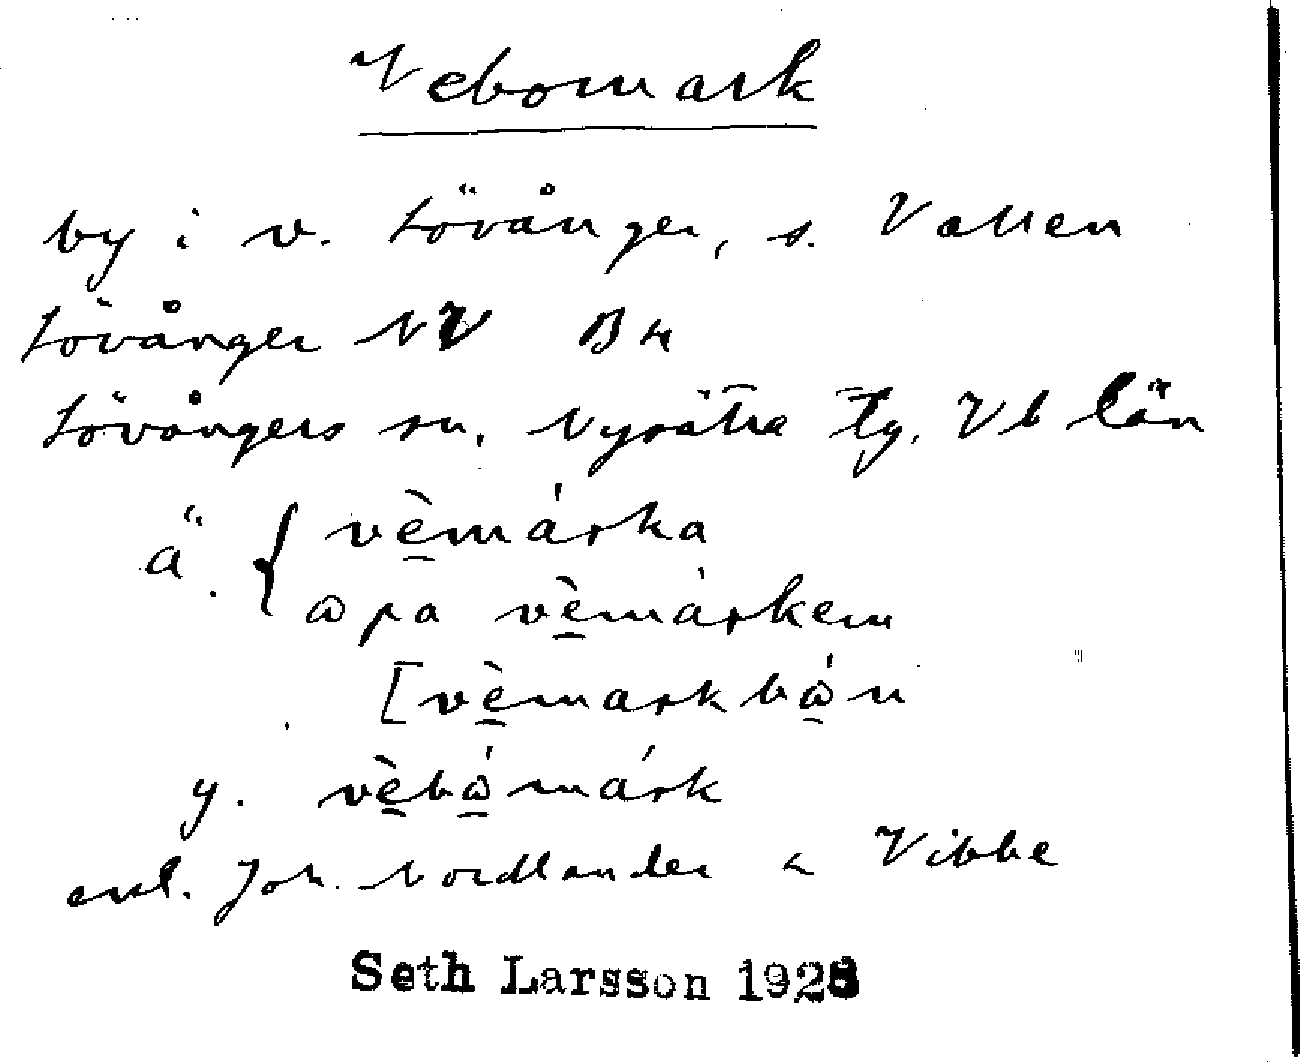 Vebomark
by i v. Lövånger, s. Vallen
Lövånger NV B4
Lövångers sn, Nysätra tg, Vb län
ä. { vèmárka
a pa vèmárkem
[vèmarkbán
y. vèbámárk
enl. Joh. Nordlander < Vibbe
Seth Larsson 1928